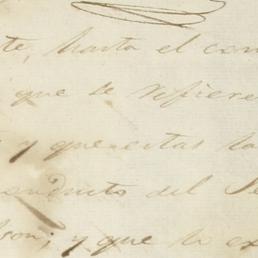 te, hasta el con
que se refiere
y que estas la
conducto del Se
son; y que lo ex